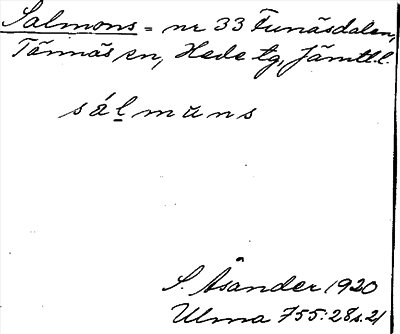 Salmons = nr 33 Funäsdalen,
Tännäs sn, Hede tg, Jämtl.
sálmans
S. Åsander 1920
Ulma 755:28 s. 21